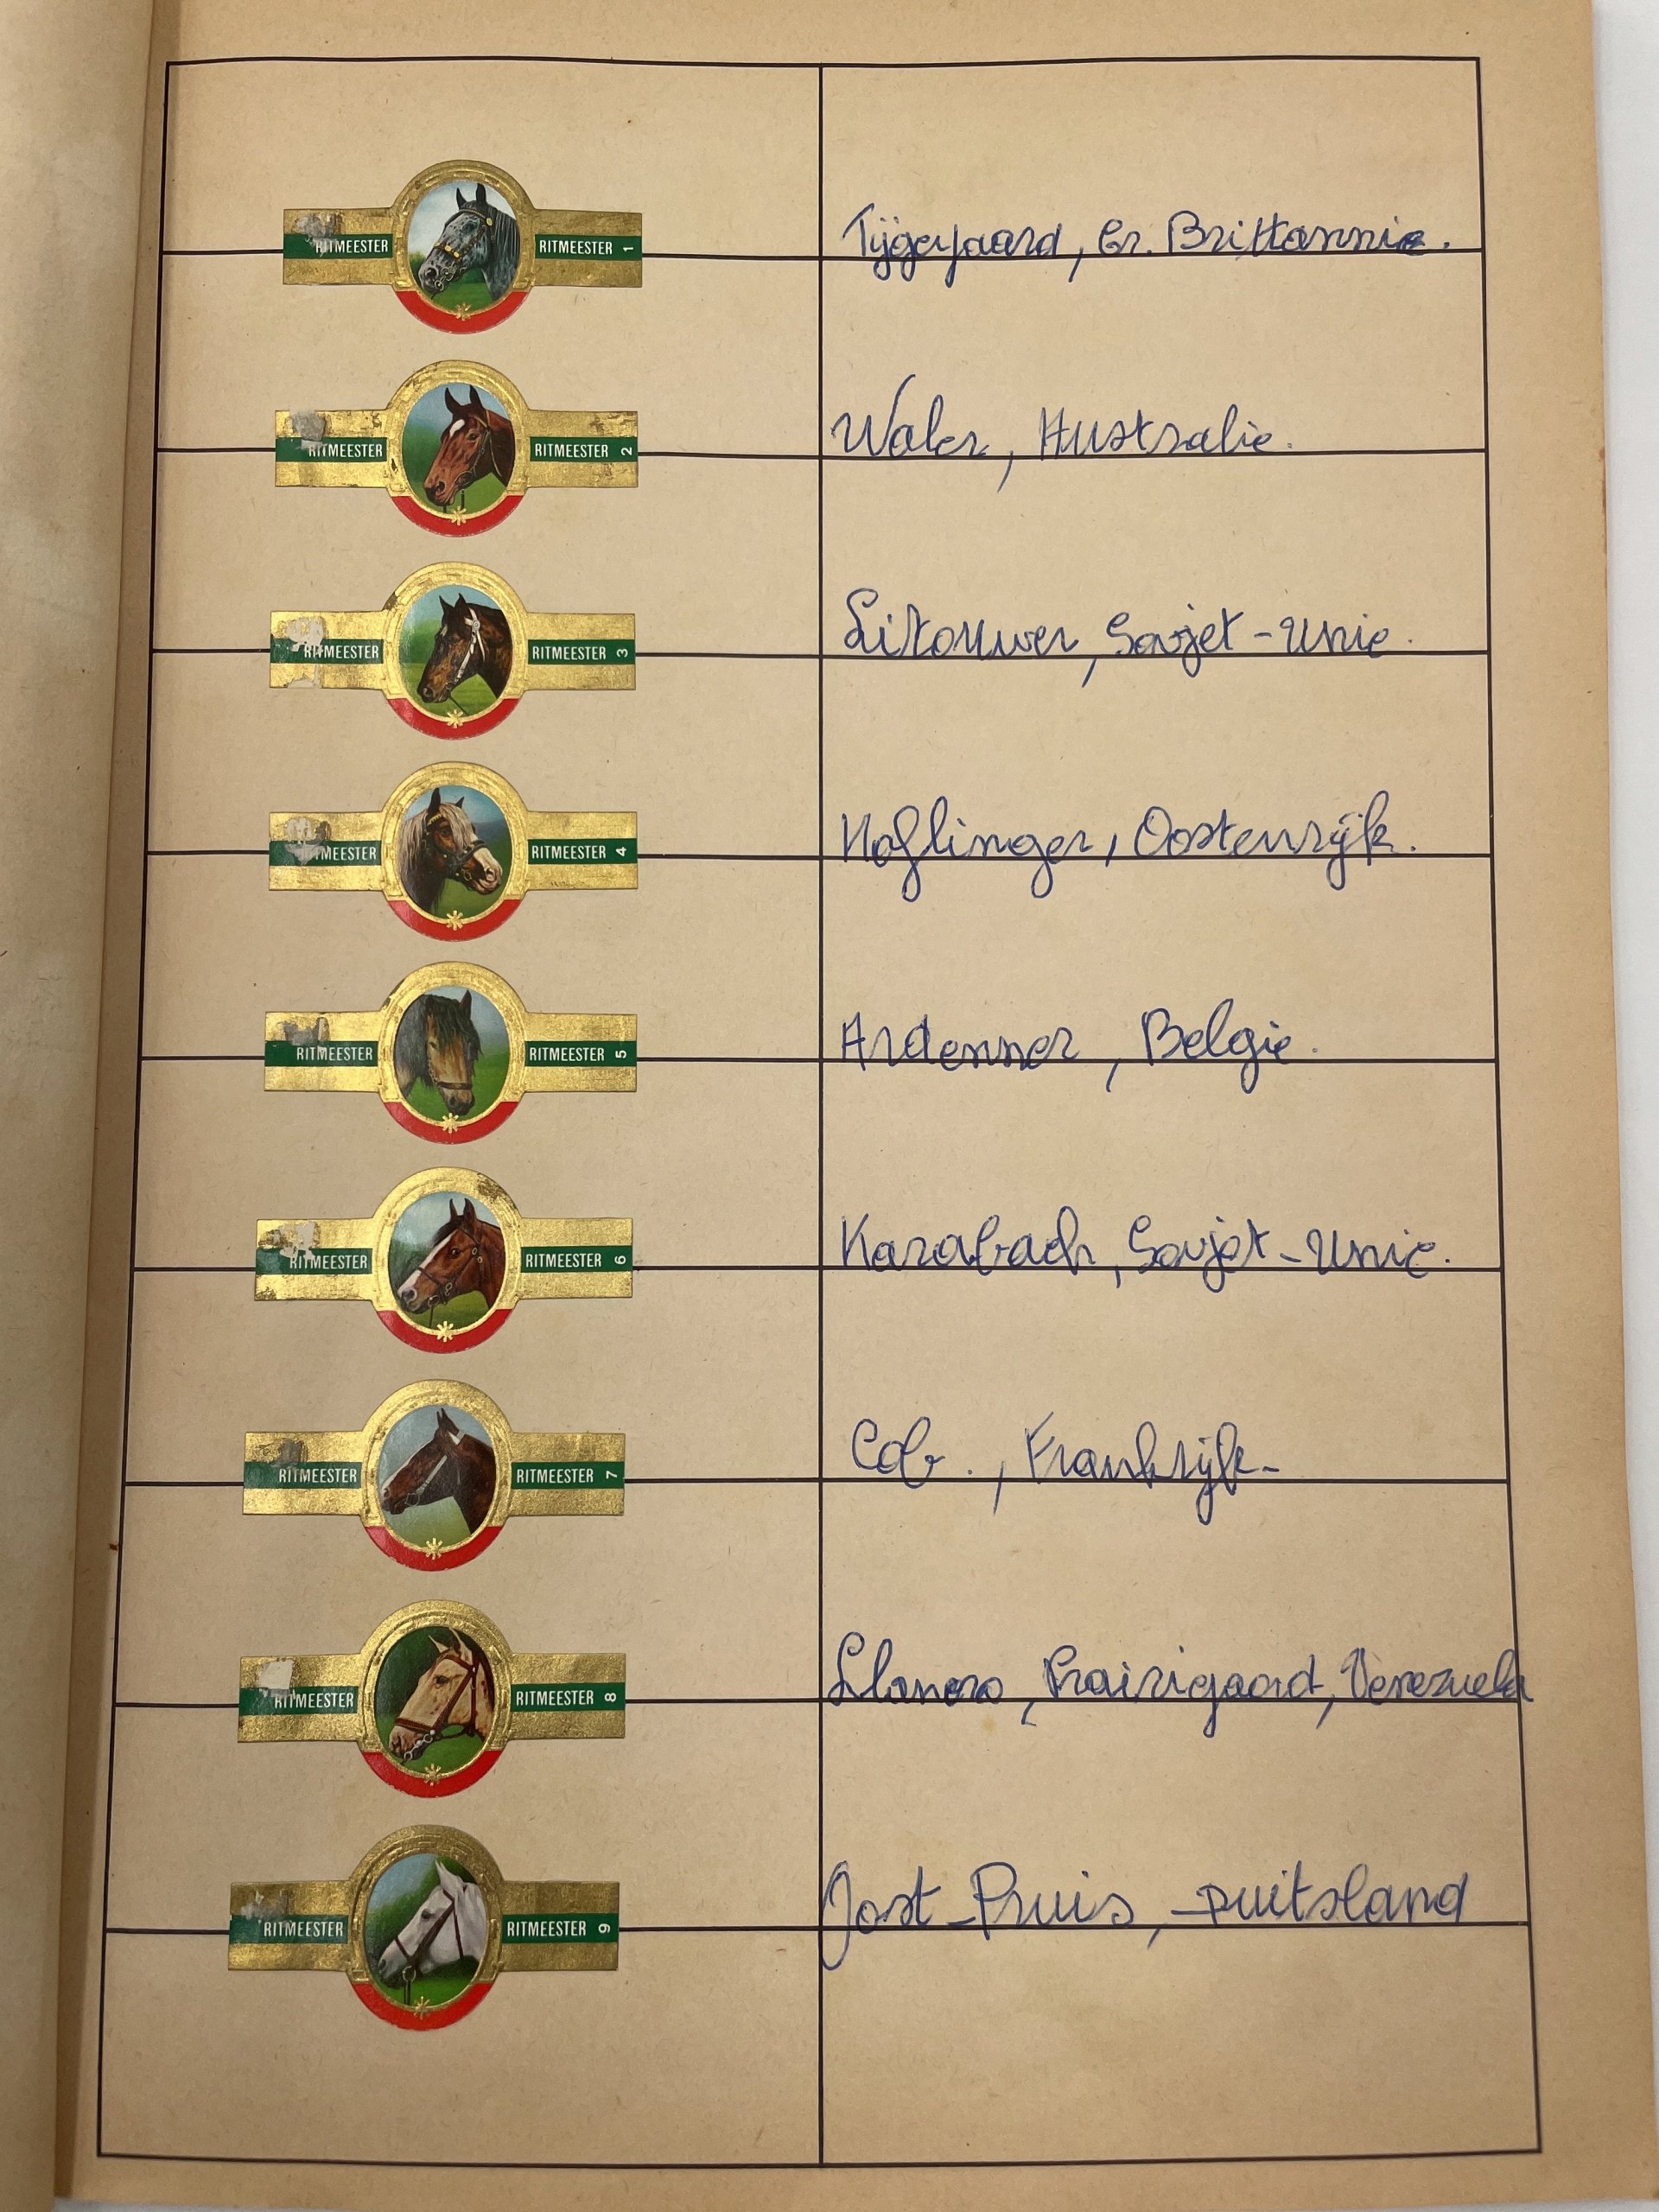 RITMEESTER RITMEESTER 1 Tijgerpaard, Gr. Brittannie.
RITMEESTER RITMEESTER 2 Waler, Australie.
RITMEESTER RITMEESTER 3 Litouwer, Sovjet-Unie.
RITMEESTER RITMEESTER 4 Haflinger, Oostenrijk.
RITMEESTER RITMEESTER 5 Ardenner, Belgie.
RITMEESTER RITMEESTER 6 Karabach, Sovjet-Unie.
RITMEESTER RITMEESTER 7 Cob., Frankrijk-
RITMEESTER RITMEESTER 8 Llanero, Prairiepaard, Venezuela
RITMEESTER RITMEESTER 9 Oost-Pruis, -Duitsland